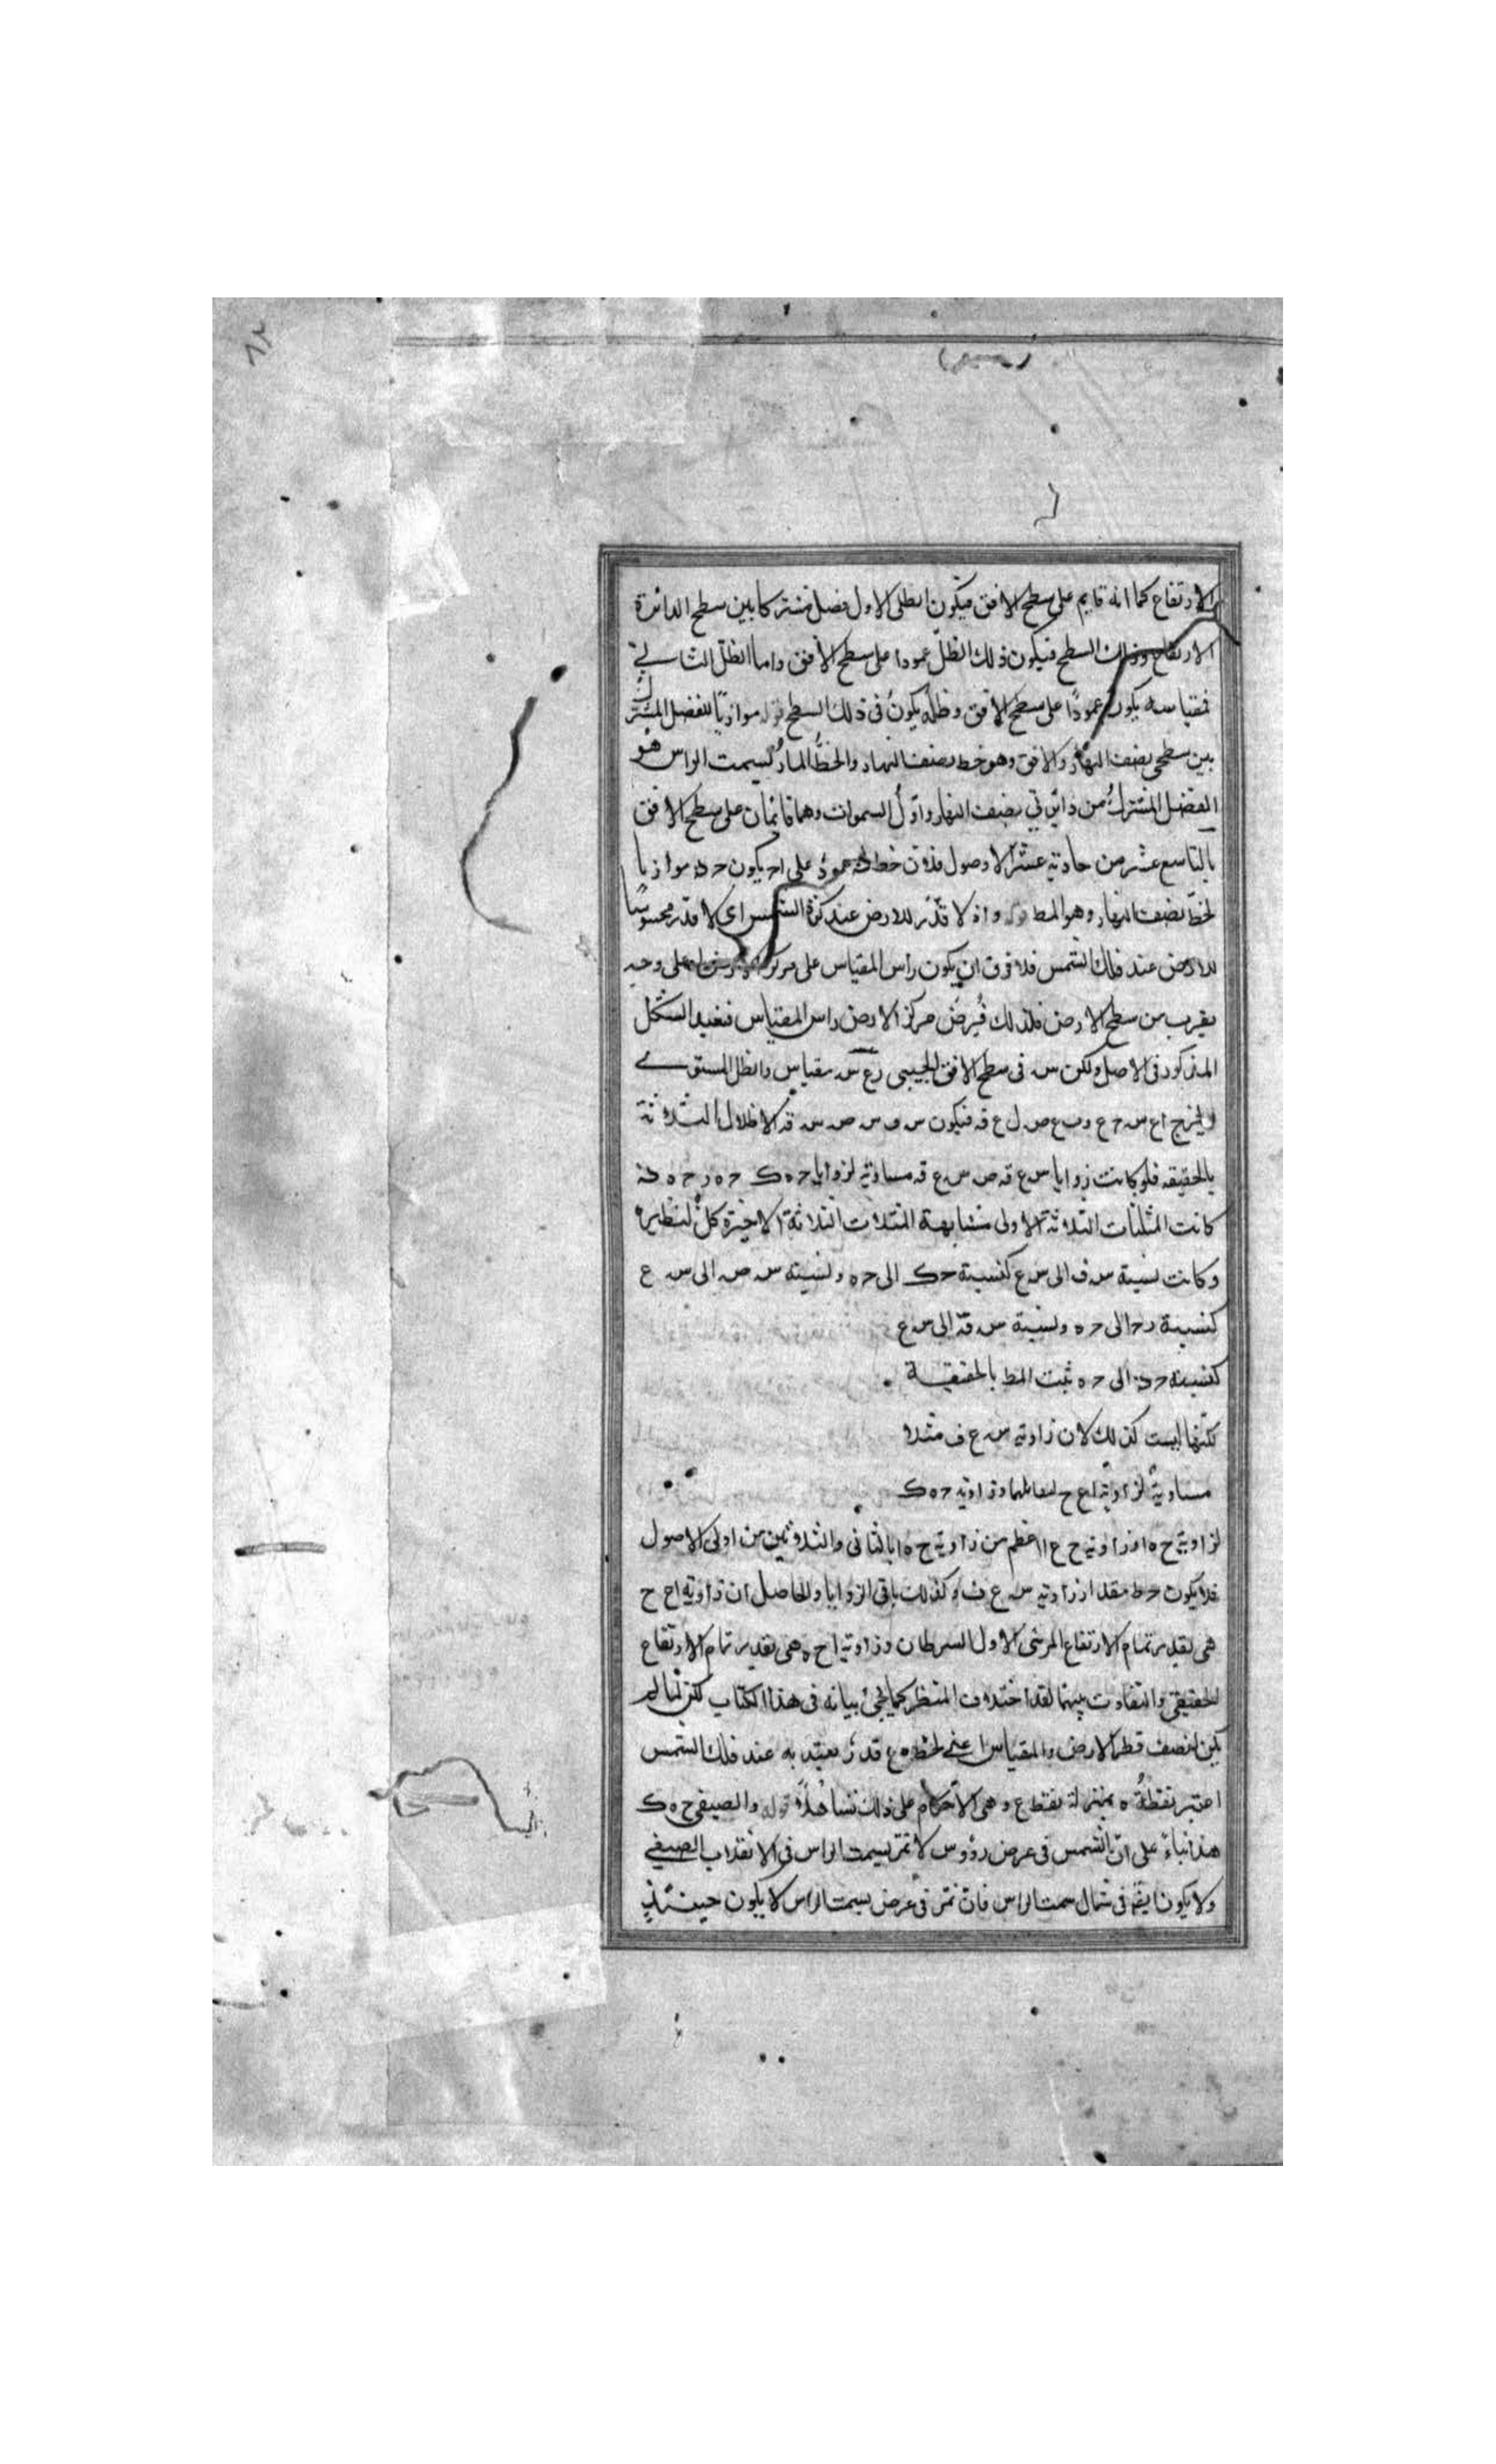 الارتفاع كما انه قايم على سطح الافق فيكون الظل الاول فصل مشتركا بين سطح الدائرة
الارتفاع وذلك السطح فيكون ذلك الظل عمودا على سطح الافق واما الظل الثاني
فمقياسه يكون عمودًا على سطح الافق وظله يكون في ذلك السطح قوله موازيًا للفصل المشترك
بين سطحي نصف النهار والافق وهو خط نصف النهار والخطُّ المارُّ بسمت الراس هُو
الفصل المشترك من دائرتي نصف النهار واوّل السموات وهما قائمان على سطح الافق
بالتاسع عشر من حادية عشر الاصول فلان خط عمودٌ على اح يكون موازيا
لخط نصف النهار وهو المط قوله واذ لا قدْر للارض عند كرة الشمس اى لا قدر محسوسًا
للارض عند فلك الشمس فلا فرق ان يكون راس المقياس على مركز على وجه
يقرب من سطح الارض فلذلك فُيرضَ مركز الارض راس المقياس فنعيد الشكل
المذكور في الاصل ولكن س في سطح الافق الحسي ع س مقياس والظل المستوى
وليخرج اع س ح ع وب ع ص ل ع ق فيكون س ف س ص س ق الاظلال الثلاثة
بالحقيقه فلو كانت زوايا س ع ق ص س ع ق مساوية لزوايا ح ه ك ح ه ر ح ه
كانت المثلثات الثلاثة الاولى متشابهة المثلثات الثلاثة الاخيرة كلٌّ لنظيره
وكانت نسبة س ف الى س ع كنسبة ح ك الى ح ه ونسبة س ص الى س ع
كنسبة ر ح الى ح ه ونسبة س ق الى س ع
كنسبة الى ح ه ثبت المط بالحقيقية
لكنّها ليست كذلك لان زاوية س ع ف مثلا
مساوية لزاوية اع ح لتقابلهما وزاوية ح ه ك
لزاوية ح ه ا وزاوية ح ع ا اعظم من زاوية ح ه ا بالثاني والثلاثين من اولى الاصول
فلا يكون ح ط مقدار زاوية س ع ف وكذلك باقى الزوايا والحاصل ان زاوية ا ح ح
هى بقدر تمام الارتفاع المرئى الاول السرطان وزاوية ا ح ه هى بقدر تمام الارتفاع
الحقيقى والتفاوت بينهما بقدر اختلاف المنظر كما يجئ بيانه في هذا الكتاب لكن لما لم
يكن لنصف قطر الارض والمقياس اعني لخط ه ع قدرٌ يعتد به عند فلك الشمس
اعتبر نقطةُ ه بمنزلة نقطع ع وهى الاحكام على ذلك تساهلًا قوله والصيفى ح ه ك
هذا بناءً على انّ الشمس في عرض رؤوس لا تمر بسمت الراس في الانقلاب الصيفي
ولا يكون ايضًا في شمال سمت الراس فان تمر في عرض بسمت الراس لا يكون حينئذٍ